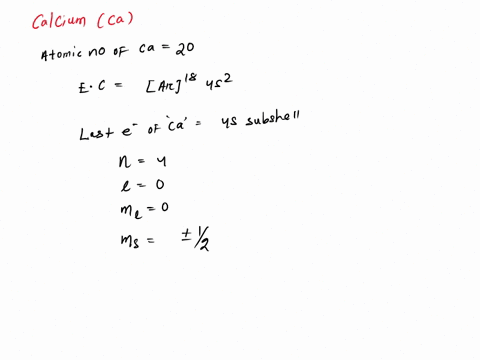 Calcium (Ca)
Atomic no of Ca = 20
E.C = [Ar]¹⁸ 4s²
Last e⁻ of 'Ca' = 4s subshell
n = 4
l = 0
mₗ = 0
mₛ = ± 1/2